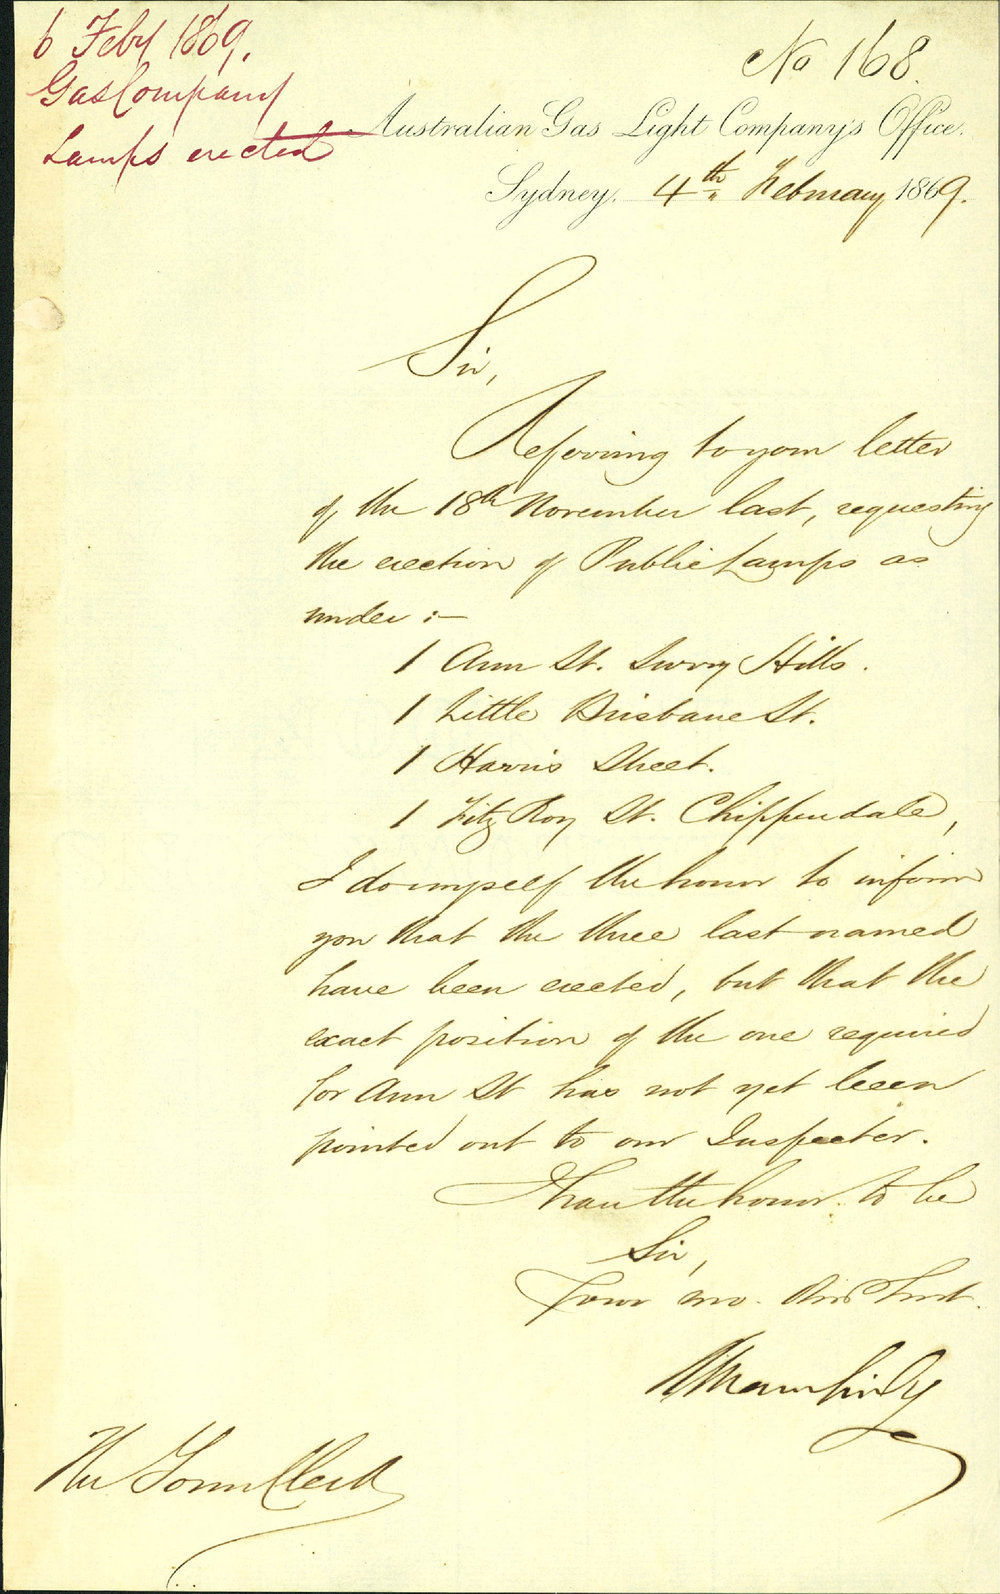 6 Feby 1869.
Gas Company
Lamps erected
No 168.
Australian Gas Light Company's Office.
Sydney. 4th February 1869.
Sir,
Referring to your letter
of the 18th November last, requesting
the erection of Public Lamps as
under :—
1 Ann St. Surry Hills.
1 Little Brisbane St.
1 Harris Street.
1 Fitz Roy St. Chippendale,
I do myself the honor to inform
you that the three last named
have been erected, but that the
exact position of the one required
for Ann St has not yet been
pointed out to our Inspector.
I have the honor to be
Sir,
Your mo. Obt Servt.
The Town Clerk